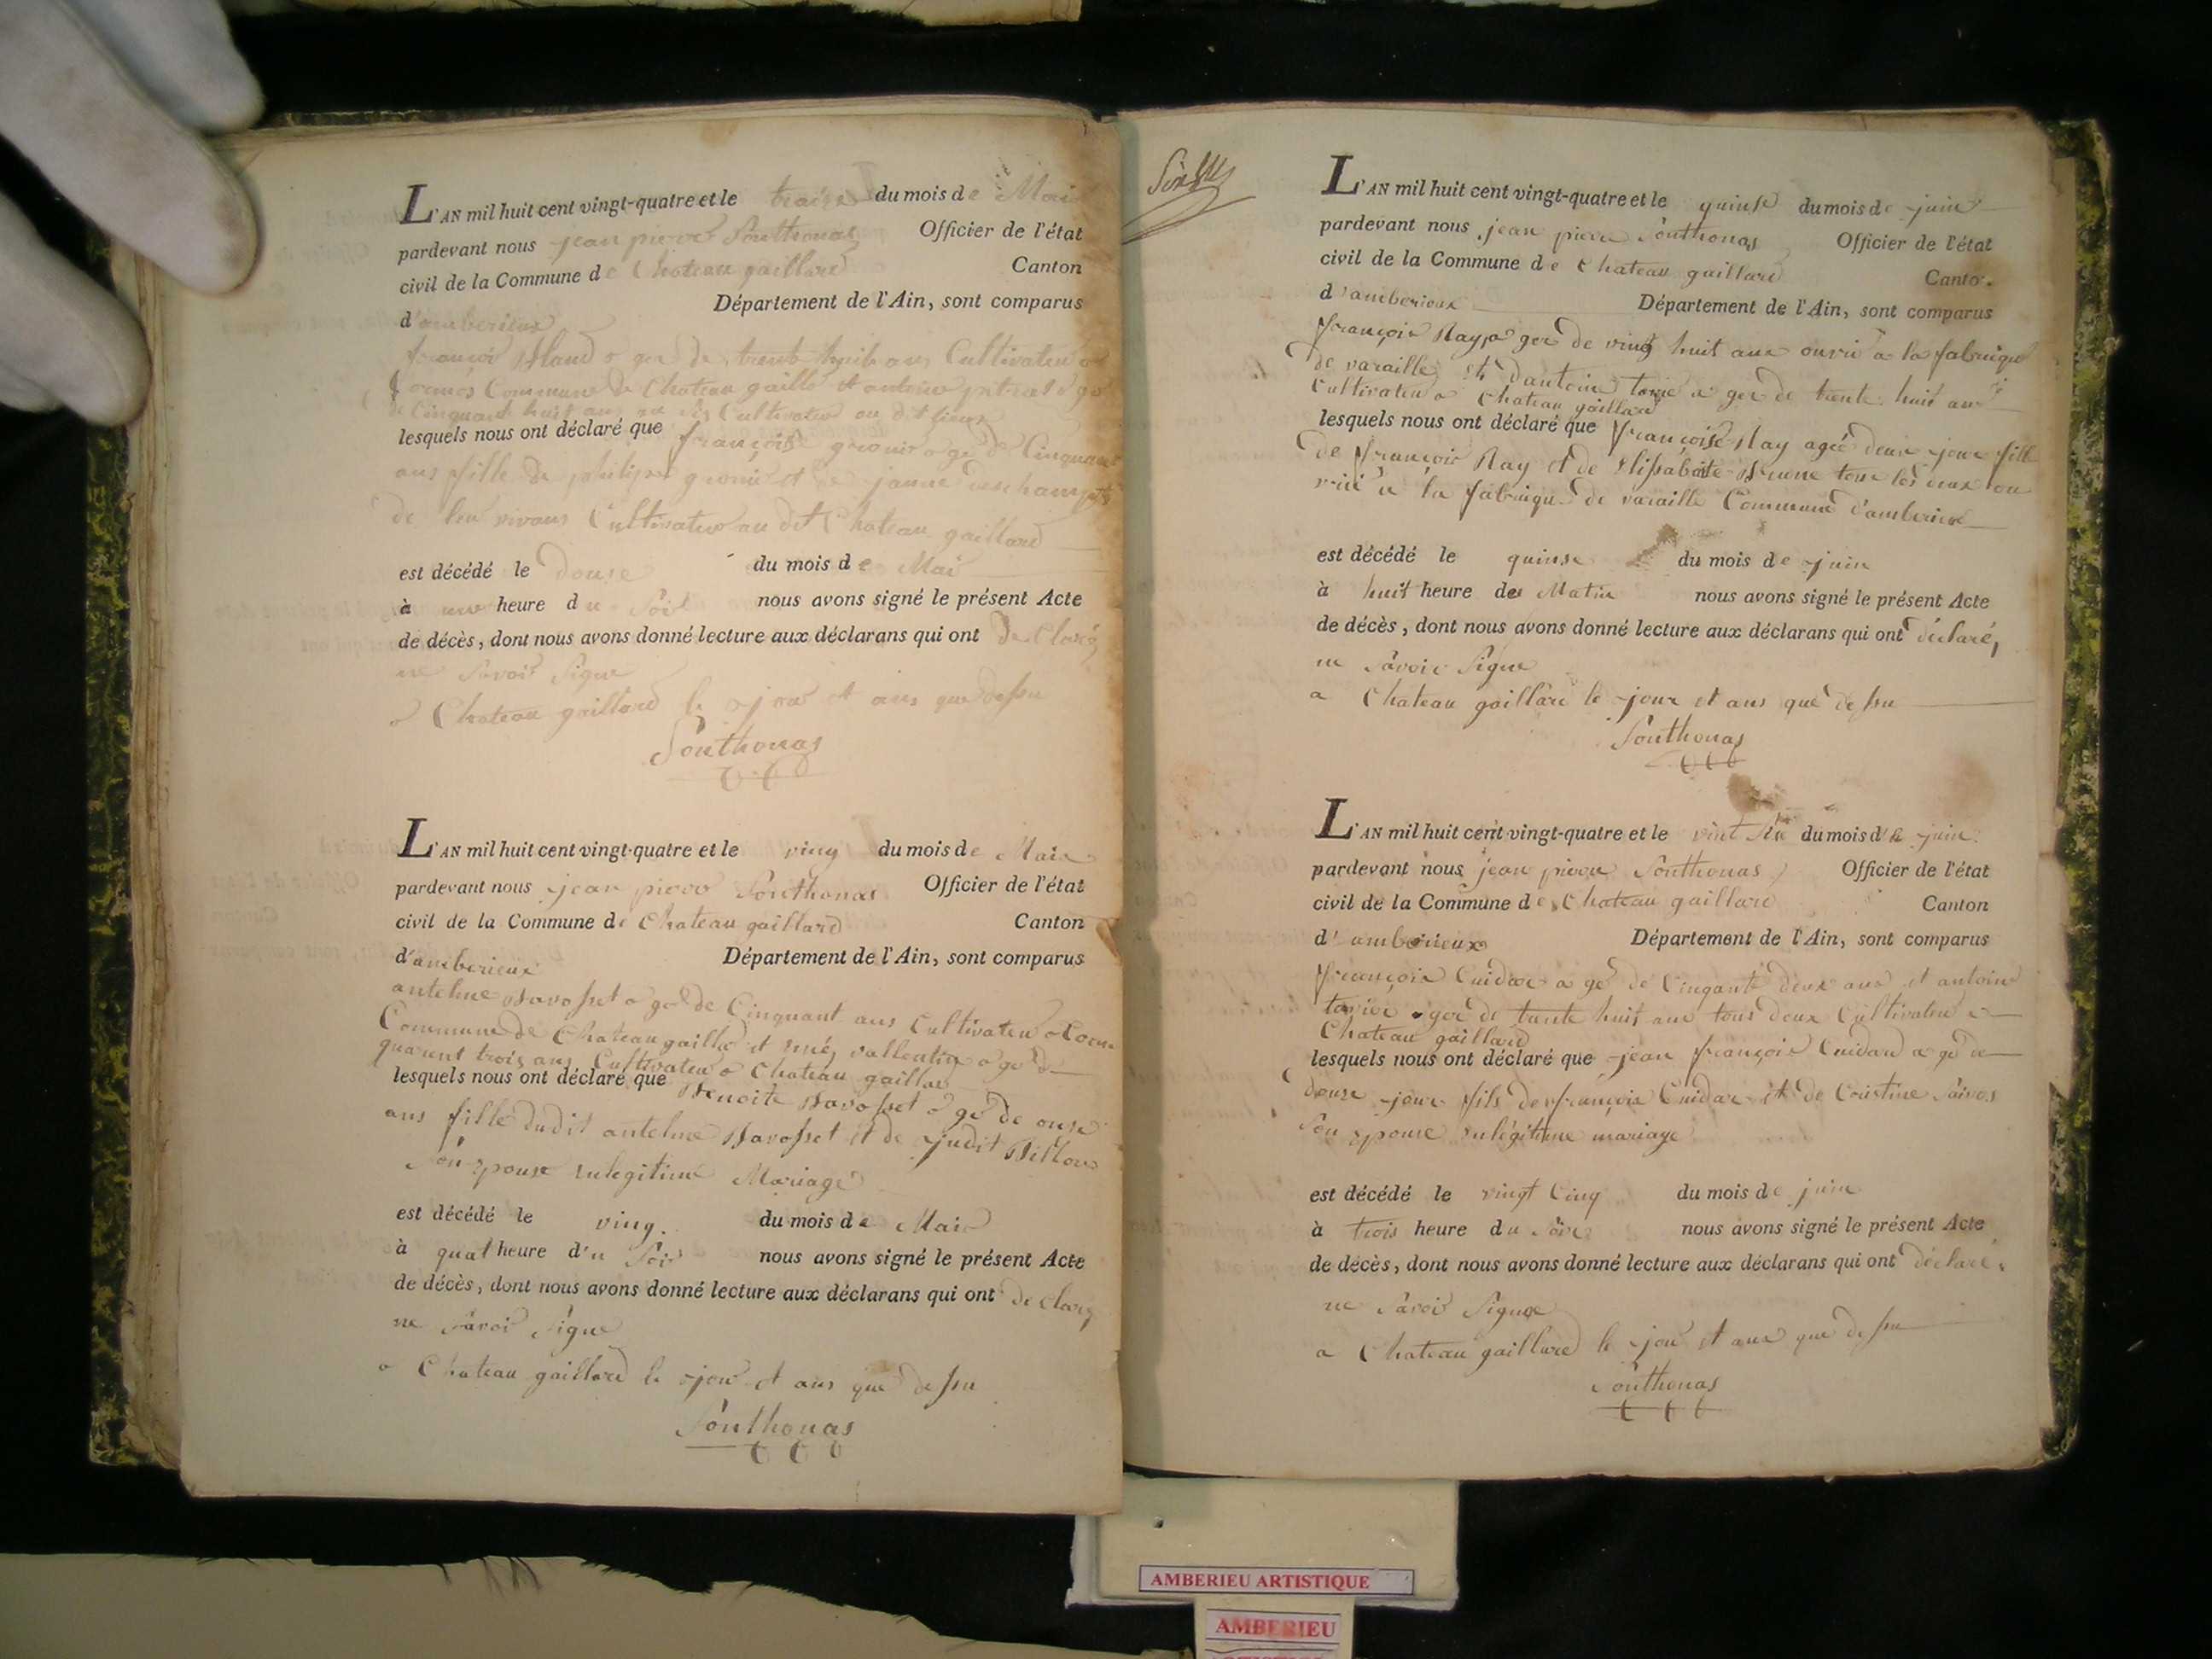 L'AN mil huit cent vingt-quatre et le traise du mois de Mai
pardevant nous jean pierre Southonas Officier de l'état
civil de la Commune de Chateau gaillard Canton
d'amberieux Département de l'Ain, sont comparus
françois age de trente huit ans Cultivateu a
Commune de Chateau gaille et antoine age
de Cinquant huit ans Cultivateu au dit lieux
lesquels nous ont déclaré que françoise age de Cinquant
ans fille de philipe et de janne deschamps
de leu vivans Cultivateu au dit Chateau gaillard
est décédé le douse du mois de Mai
à une heure du Soir nous avons signé le présent Acte
de décès, dont nous avons donné lecture aux déclarans qui ont de Claré
ne Savoir Signe
a Chateau gaillard le jour et ans que dessu
Southonas
L'AN mil huit cent vingt-quatre et le ving du mois de Mai
pardevant nous jean pierre Southonas Officier de l'état
civil de la Commune de Chateau gaillard Canton
d'amberieux Département de l'Ain, sont comparus
antelme Savosset a gé de Cinquant ans Cultivateu a
Commune de Chateau gaille et vallentin a gé de
quarent trois ans Cultivateu a Chateau gaillar
lesquels nous ont déclaré que Benoite Savosset a gé de onse
ans fille dudit antelme Savosset et de judit Billon
Son epouse enlegitime Mariage
est décédé le ving du mois de Mai
à quat heure d'u Soir nous avons signé le présent Acte
de décès, dont nous avons donné lecture aux déclarans qui ont de Claré
ne Savoir Signe
a Chateau gaillard le jour et ans que dessu
Southonas
L'AN mil huit cent vingt-quatre et le quinse du mois de juin
pardevant nous jean pierre Southonas Officier de l'état
civil de la Commune de Chateau gaillard Canton
d'amberieux Département de l'Ain, sont comparus
françois Ray a ger de ving huit ans ouvrié a la fabrique
de varaille et d'antoine a ger de trente huit ans
Cultivateu a Chateau gaillard
lesquels nous ont déclaré que françoise Ray ageé deux jour fille
de françois Ray et de Elissabaite tous les deux ou
vrié a la fabrique de varaille Commune d'amberieux
est décédé le quinse du mois de juin
à huit heure de Matin nous avons signé le présent Acte
de décès, dont nous avons donné lecture aux déclarans qui ont déclaré,
ne Savoir Signe
a Chateau gaillard le jour et ans que dessu
Southonas
L'AN mil huit cent vingt-quatre et le vint Six du mois de juin
pardevant nous jean pierre Southonas Officier de l'état
civil de la Commune de Chateau gaillard Canton
d'amberieux Département de l'Ain, sont comparus
françois Cuidar a gé de Cinqante deux ans et antoine
tavier ager de trente huit ans tous deux Cultivateu a
Chateau gaillard
lesquels nous ont déclaré que jean françois Cuidard a gé de
douse jour fils de françois Cuidar et de Cristine
Son epouse enlégitime mariage
est décédé le vingt Cinq du mois de juin
à trois heure du Soir nous avons signé le présent Acte
de décès, dont nous avons donné lecture aux déclarans qui ont déclaré,
ne Savoir Signe
a Chateau gaillard le jour et ans que dessu
Southonas
AMBERIEU ARTISTIQUE
AMBERIEU